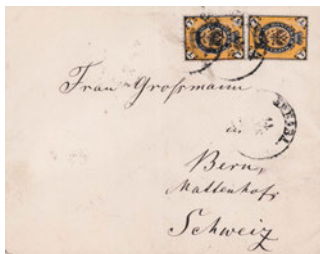 Frau Grossmann
in
Bern,
Mattenhof,
Schweiz